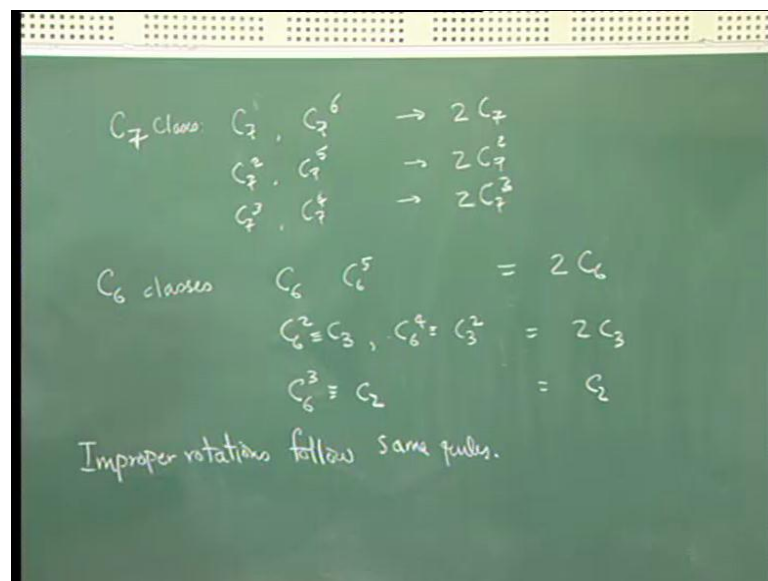 C₇ classes: C₇¹, C₇⁶ → 2C₇
C₇², C₇⁵ → 2C₇²
C₇³, C₇⁴ → 2C₇³
C₆ classes C₆ C₆⁵ = 2C₆
C₆² ≡ C₃, C₆⁴ ≡ C₃² = 2C₃
C₆³ ≡ C₂ = C₂
Improper rotations follow same rules.